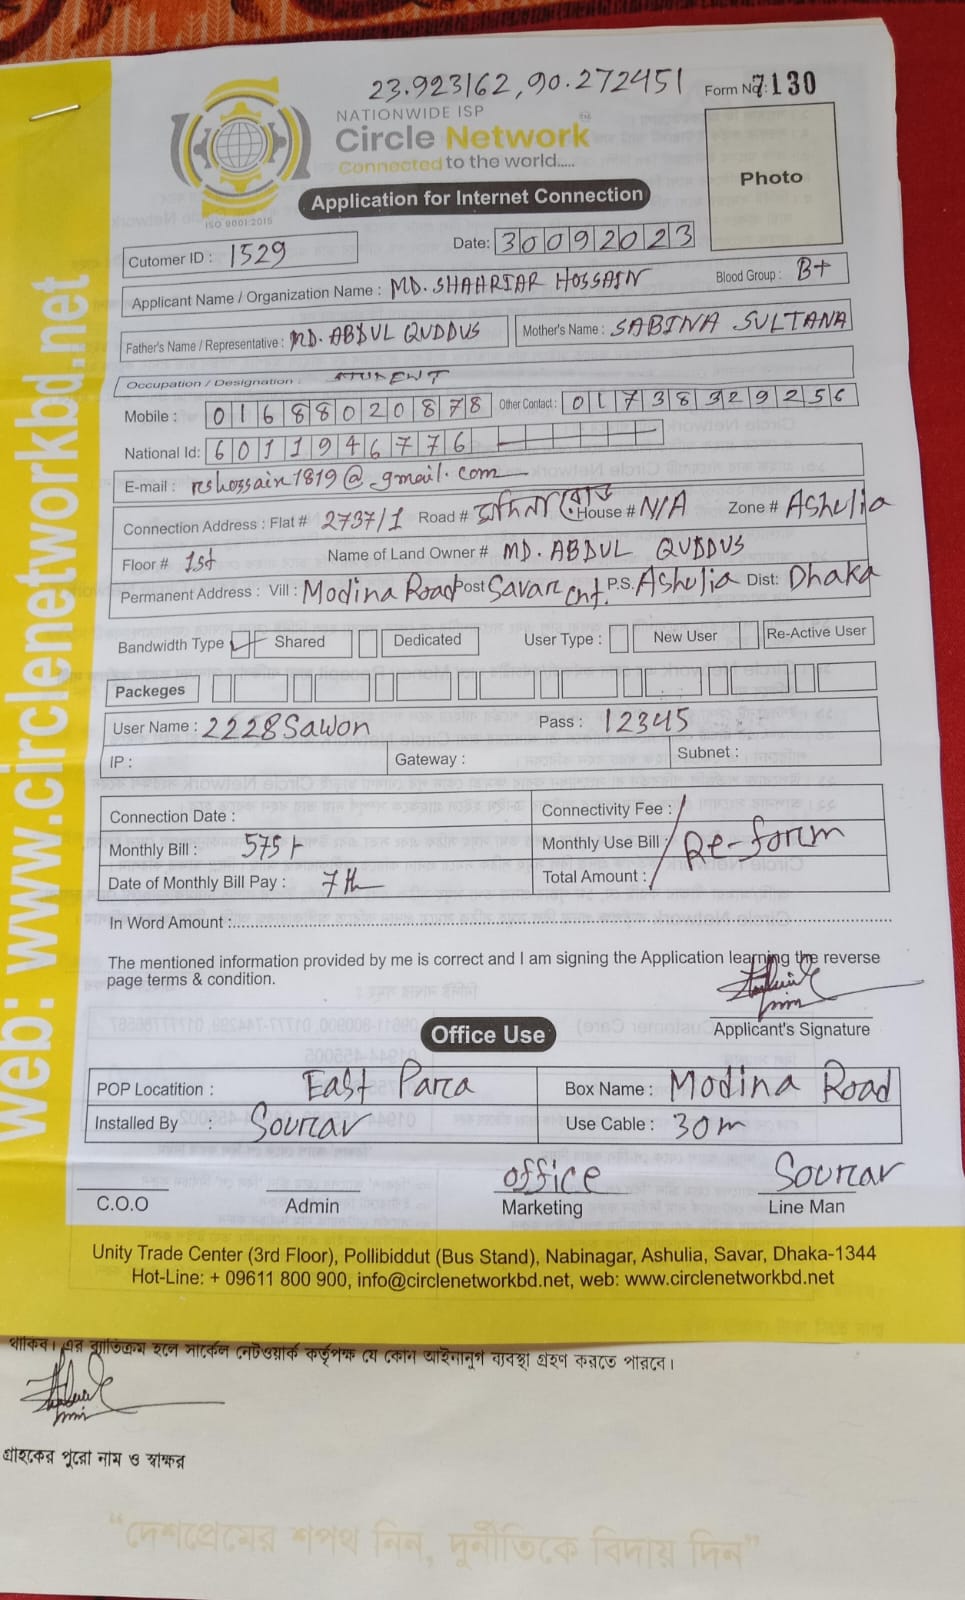 23.923162,90.272451
Form No: 7130
NATIONWIDE ISP
Circle Network
Connected to the world.....
ISO 9001:2015
Photo
Application for Internet Connection
Date: 30092023
Cutomer ID : 1529
Applicant Name / Organization Name : MD. SHAHRIAR HOSSAIN Blood Group : B+
Father's Name / Representative : MD. ABDUL QUDDUS Mother's Name : SABINA SULTANA
Occupation / Designation : STUDENT
Mobile : 01688020878 Other Contact : 01738929256
National Id: 6011946776
E-mail : rshossain1819@gmail.com
Connection Address : Flat # 2737/1 Road # মদিনা রোড House # N/A Zone # Ashulia
Floor # 1st Name of Land Owner # MD. ABDUL QUDDUS
Permanent Address : Vill : Modina Road Post Savar Cnt. P.S. Ashulia Dist: Dhaka
Bandwidth Type Shared Dedicated User Type : New User Re-Active User
Packeges
User Name : 2228Sawon Pass : 12345
IP : Gateway : Subnet :
Connection Date : Connectivity Fee :
Monthly Bill : 575/- Monthly Use Bill : Re-form
Date of Monthly Bill Pay : 7th Total Amount :
In Word Amount :
The mentioned information provided by me is correct and I am signing the Application learning the reverse
page terms & condition.
Applicant's Signature
Office Use
POP Locatition : East Para Box Name : Modina Road
Installed By : Sourav Use Cable : 30m
office Sourav
C.O.O Admin Marketing Line Man
Unity Trade Center (3rd Floor), Pollibiddut (Bus Stand), Nabinagar, Ashulia, Savar, Dhaka-1344
Hot-Line: + 09611 800 900, info@circlenetworkbd.net, web: www.circlenetworkbd.net
web: www.circlenetworkbd.net
থাকিব। এর ব্যতিক্রম হলে সার্কেল নেটওয়ার্ক কর্তৃপক্ষ যে কোন আইনানুগ ব্যবস্থা গ্রহণ করতে পারবে।
গ্রাহকের পুরো নাম ও স্বাক্ষর
“দেশপ্রেমের শপথ নিন, দুর্নীতিকে বিদায় দিন”